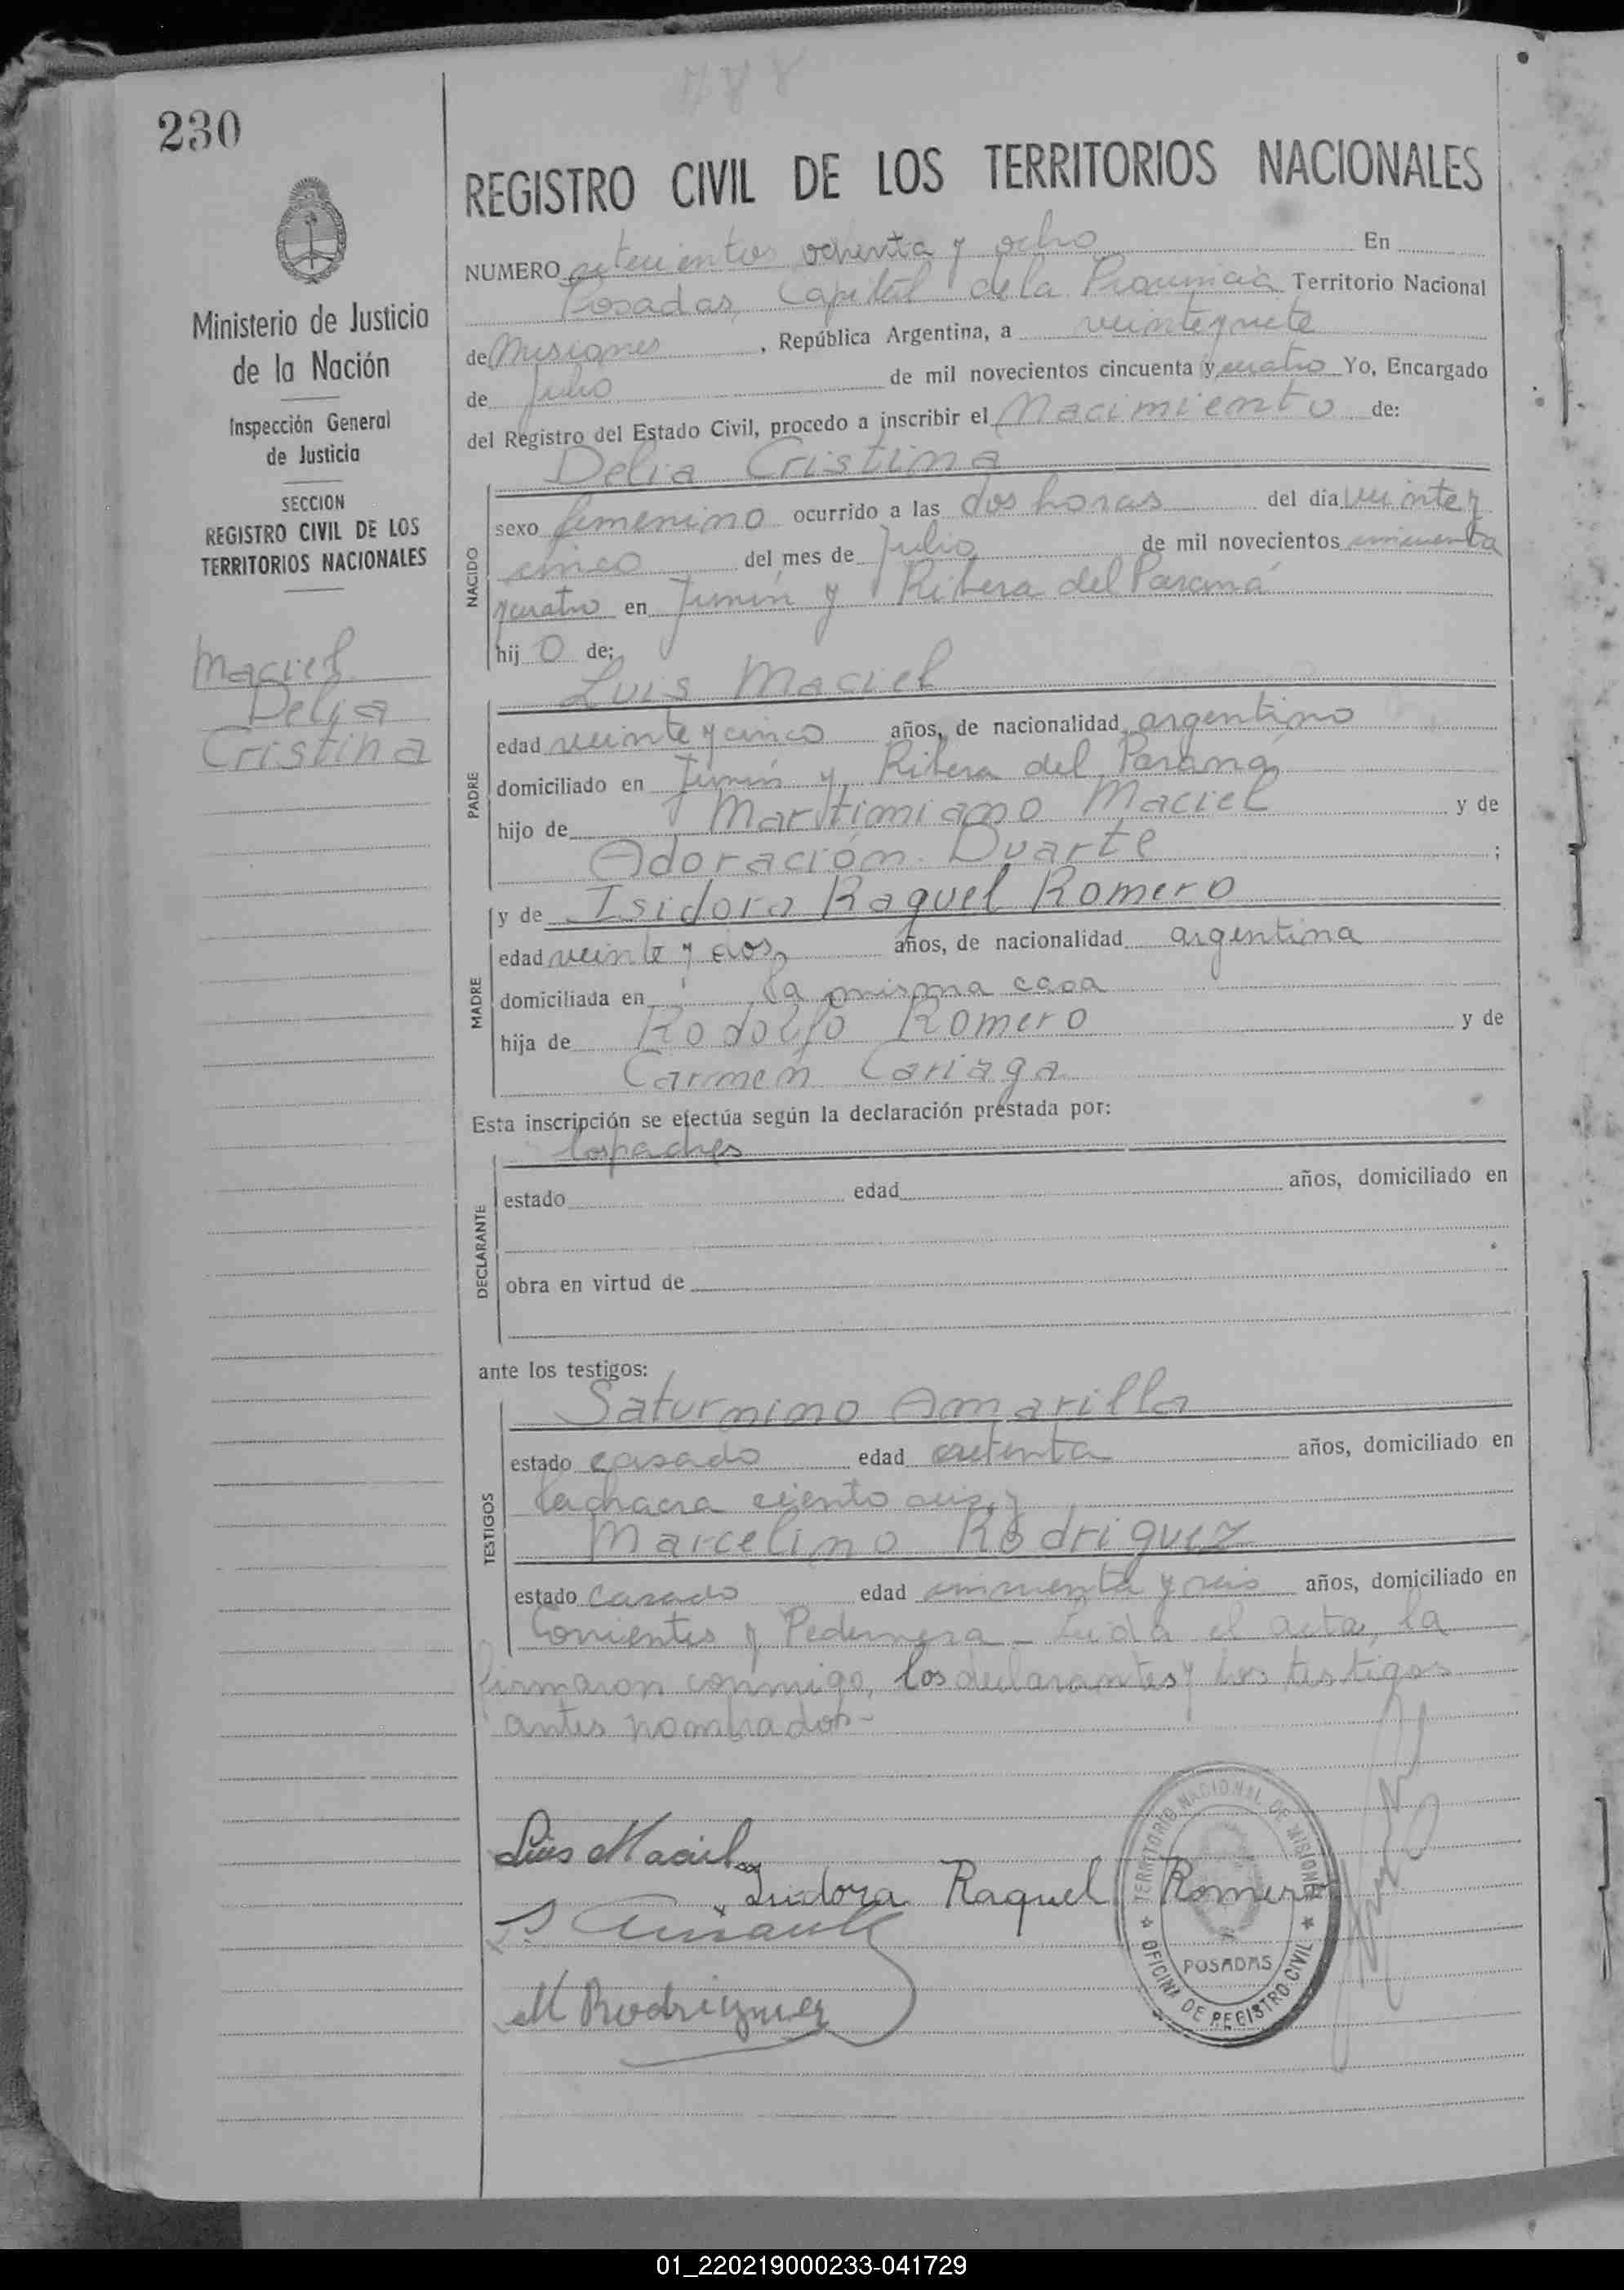 788
230
REGISTRO CIVIL DE LOS TERRITORIOS NACIONALES
Ministerio de Justicia
de la Nación
Inspección General
de Justicia
SECCION
REGISTRO CIVIL DE LOS
TERRITORIOS NACIONALES
Maciel
Delia
Cristina
NUMERO setecientos ochenta y ocho En
Posadas, Capital de la Provincia Territorio Nacional
de Misiones, República Argentina, a veintisiete
de Julio de mil novecientos cincuenta y cuatro Yo, Encargado
del Registro del Estado Civil, procedo a inscribir el Nacimiento de:
Delia Cristina
NACIDO
sexo femenino ocurrido a las dos horas del día veinte y
cinco del mes de Julio de mil novecientos cincuenta
y cuatro en Junín y Ribera del Paraná
hij O de:
Luis Maciel
PADRE
edad veinte y cinco años, de nacionalidad argentino
domiciliado en Junín y Ribera del Paraná
hijo de Martimiano Maciel y de
Adoración Duarte ;
y de Isidora Raquel Romero
MADRE
edad veinte y dos años, de nacionalidad argentina
domiciliada en la misma casa
hija de Rodolfo Romero y de
Carmen Cariaga
Esta inscripción se efectúa según la declaración prestada por:
los padres
DECLARANTE
estado edad años, domiciliado en
obra en virtud de
ante los testigos:
Saturnino Amarilla
TESTIGOS
estado casado edad setenta años, domiciliado en
la chacra ciento seis, y
Marcelino Rodriguez
estado casado edad cincuenta y seis años, domiciliado en
Corrientes y Pedernera - Leida el acta, la
firmaron conmigo, los declarantes y los testigos
antes nombrados-
Luis Maciel
Isidora Raquel Romero
M Rodriguez
TERRITORIO NACIONAL DE MISIONES
POSADAS
OFICINA DE REGISTRO CIVIL
01_220219000233-041729